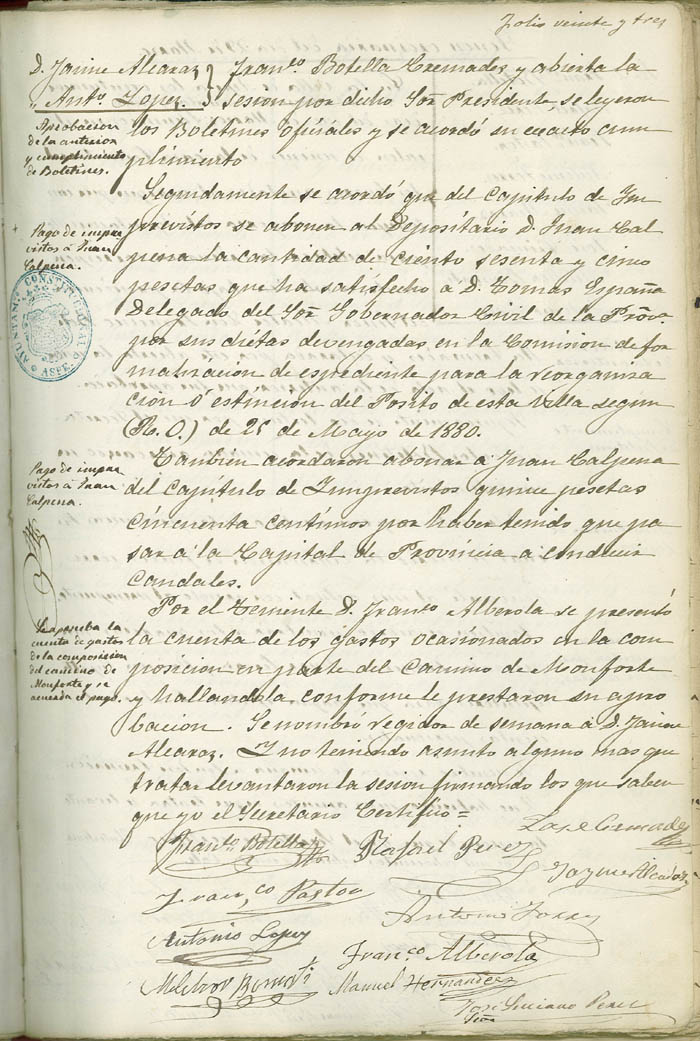 Folio veinte y tres
D. Jaime Alcaraz
" Antº. Lopez.
Franco. Botella Cremades y abierta la
sesion por dicho Sor. Presidente, se leyeron
los Boletines oficiales y se acordó su exacto cum
plimiento
Aprobacion
de la anterior
y cumplimiento
de Boletines.
Seguidamente se acordó que del Capitulo de Im
previstos se abonen al Depositario D. Juan Cal
pena la cantidad de ciento sesenta y cinco
pesetas que ha satisfecho á D. Tomas España
Delegado del Sor. Gobernador Civil de la Prova.
por sus dietas devengadas en la Comision de for
malizacion de espediente para la reorganiza
cion ó estincion del Posito de esta Villa segun
(R. O.) de 25 de Mayo de 1880.
Pago de impre
vistos á Juan
Calpena.
AYUNTAMº. CONSTITUCIONAL
ASPE.
Tambien acordaron abonar á Juan Calpena
del Capítulo de Imprevistos quince pesetas
cincuenta centimos por haber tenido que pa
sar á la Capital de Provincia a conducir
caudales.
Pago de impre
vistos á Juan
Calpena.
Por el Teniente D. Franco Alberola se presentó
la cuenta de los gastos ocasionados en la com
posicion en parte del Camino de Monforte
y hallandola conforme le prestaron su apro
bacion. Se nombró regidor de semana á D. Jaime
Alcaraz. Y no teniendo asunto alguno mas que
tratar levantaron la sesion firmando los que saben
que yo el Secretario Certifico =
Se aprueba la
cuenta de gastos
de la composicion
del camino de
Monforte y se
acuerda el pago.
Franco. Botella
Rafael Perez
José Cremades
Jayme Alcaraz
Franco Pastor
Antonio
Antonio Lopez
Franco. Alberola
Melchor
Manuel Hernandez
José Luciano Perez
Srio